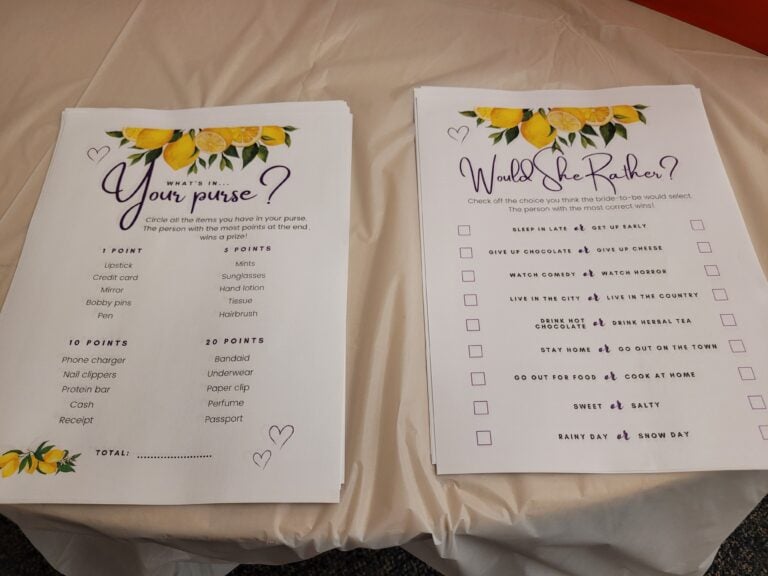 WHAT'S IN...
Your purse?
Circle all the items you have in your purse.
The person with the most points at the end
wins a prize!
1 POINT
Lipstick
Credit card
Mirror
Bobby pins
Pen
5 POINTS
Mints
Sunglasses
Hand lotion
Tissue
Hairbrush
10 POINTS
Phone charger
Nail clippers
Protein bar
Cash
Receipt
20 POINTS
Bandaid
Underwear
Paper clip
Perfume
Passport
TOTAL: ........................
Would She Rather?
Check off the choice you think the bride-to-be would select.
The person with the most correct wins!
SLEEP IN LATE or GET UP EARLY
GIVE UP CHOCOLATE or GIVE UP CHEESE
WATCH COMEDY or WATCH HORROR
LIVE IN THE CITY or LIVE IN THE COUNTRY
DRINK HOT
CHOCOLATE or DRINK HERBAL TEA
STAY HOME or GO OUT ON THE TOWN
GO OUT FOR FOOD or COOK AT HOME
SWEET or SALTY
RAINY DAY or SNOW DAY